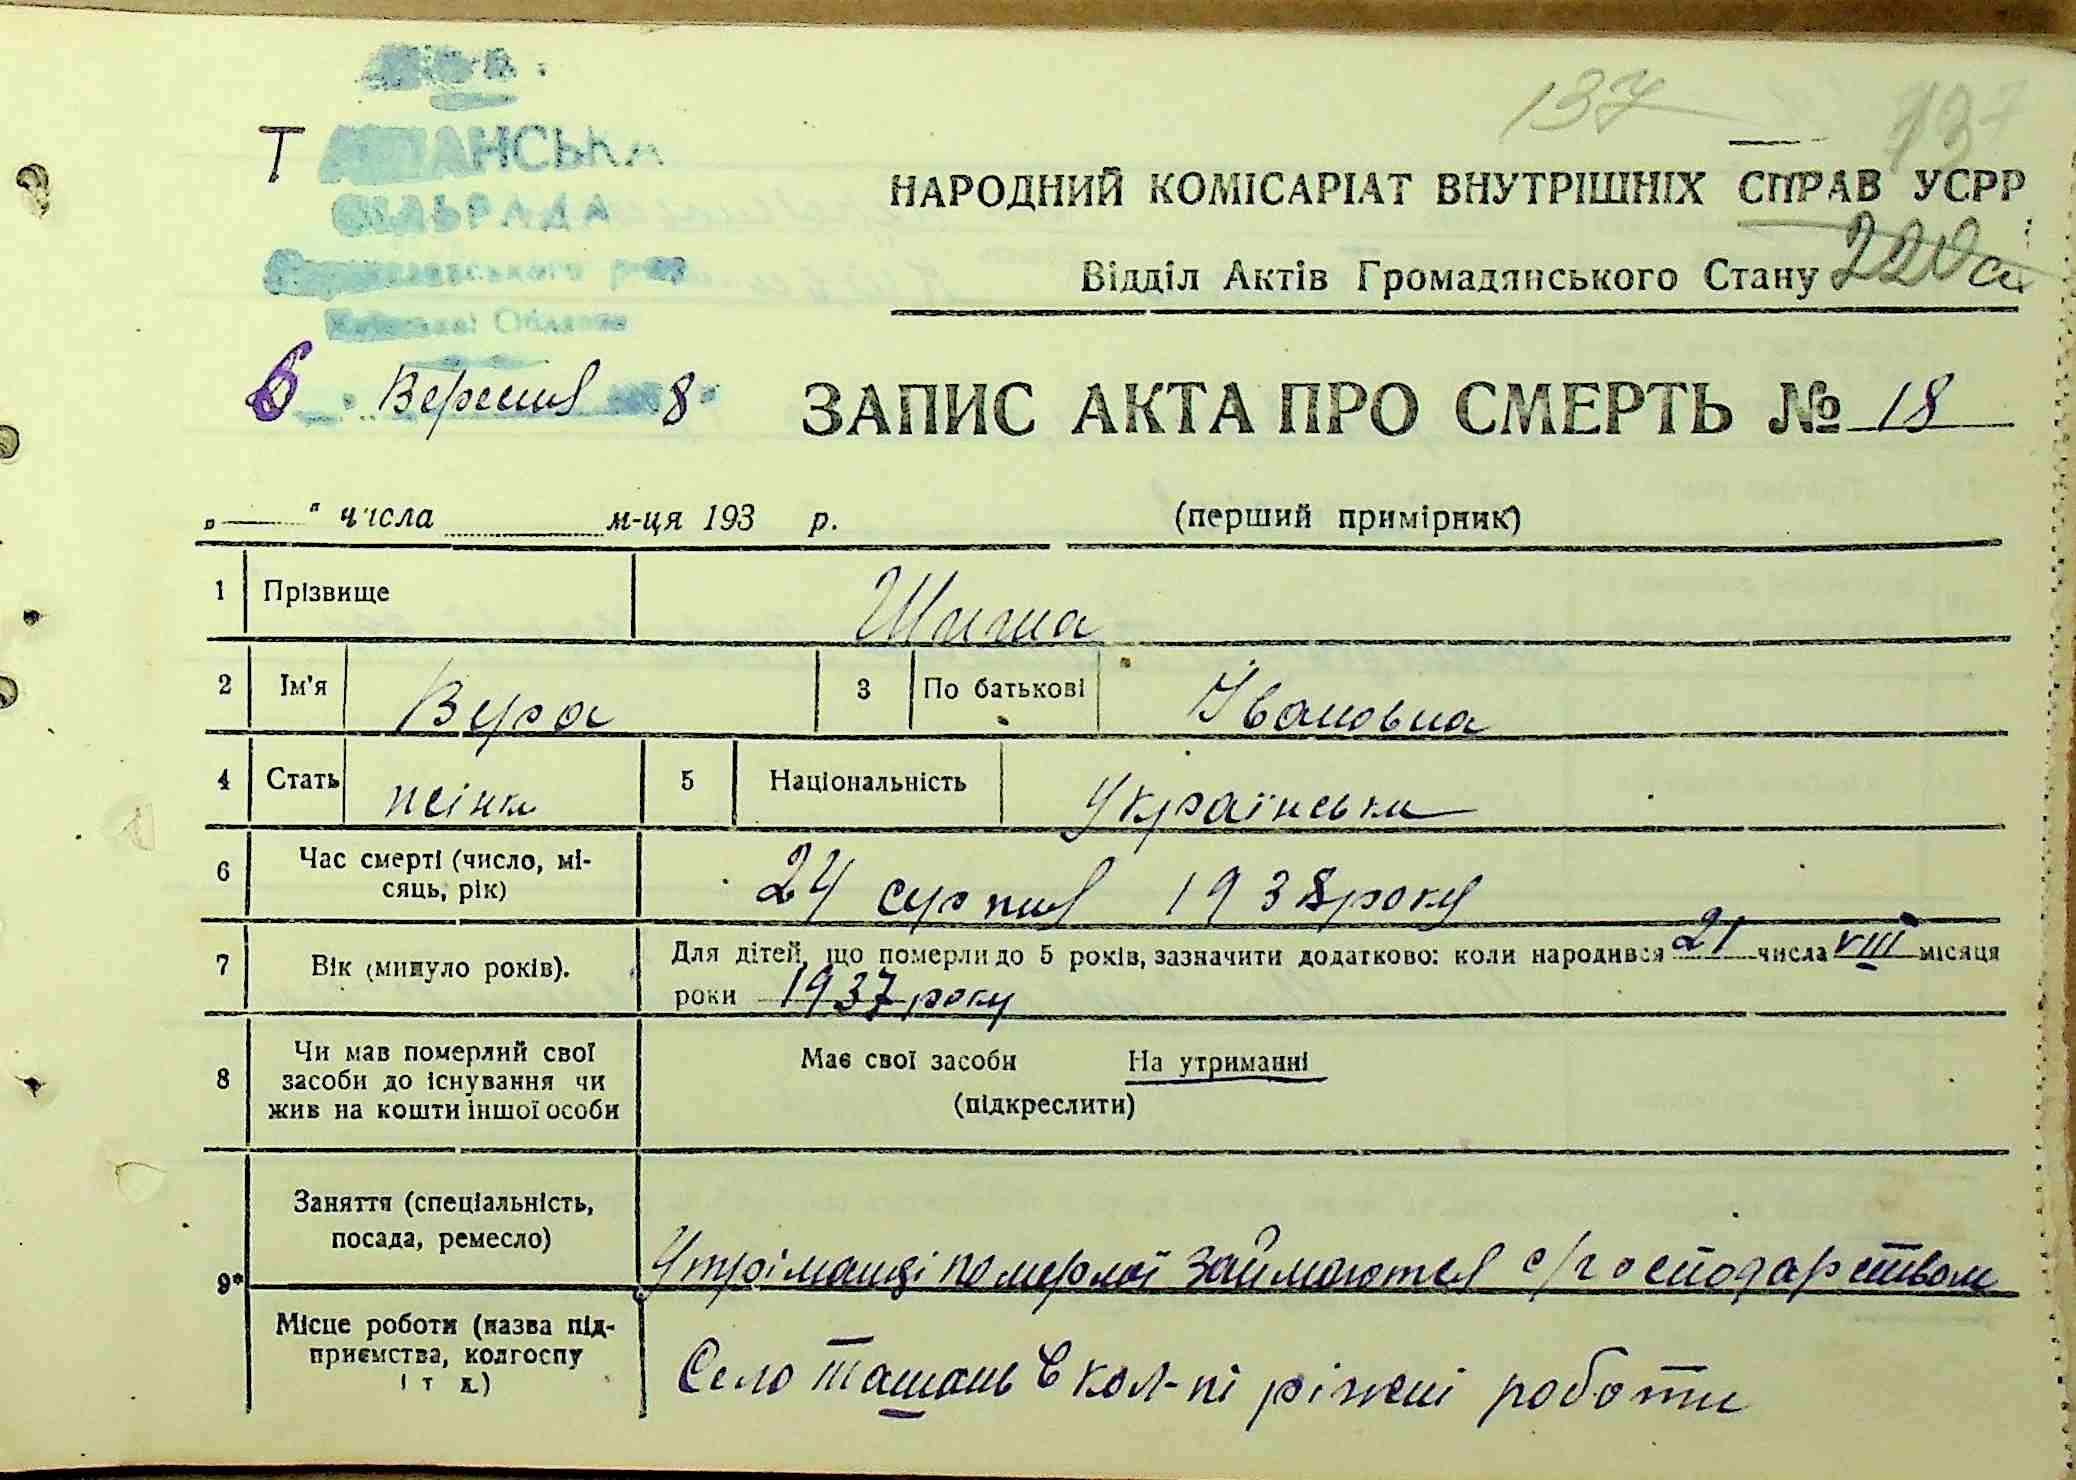 137
137
Т АШАНСЬКА
СІЛЬРАДА
р-ну
Київської Области
НАРОДНИЙ КОМІСАРІАТ ВНУТРІШНІХ СПРАВ УСРР
Відділ Актів Громадянського Стану
6 Вересня 8
ЗАПИС АКТА ПРО СМЕРТЬ № 18
„ “ числа м-ця 193 р.
(перший примірник)
1 Прізвище Шиша
2 Ім'я Вера 3 По батькові Івановна
4 Стать жінк 5 Національність Українська
6 Час смерті (число, мі-
сяць, рік) 24 серпня 1938 року
7 Вік (минуло років). Для дітей, що померли до 5 років, зазначити додатково: коли народився 21 числа VIII місяця
роки 1937 року
8 Чи мав померлий свої
засоби до існування чи
жив на кошти іншої особи
Має свої засоби На утриманні
(підкреслити)
9* Заняття (спеціальність,
посада, ремесло)
Утріманці померлої займаются с/господарством
Місце роботи (назва під-
приємства, колгоспу
і т д.)
Село Ташань в кол-пі ріжні роботи